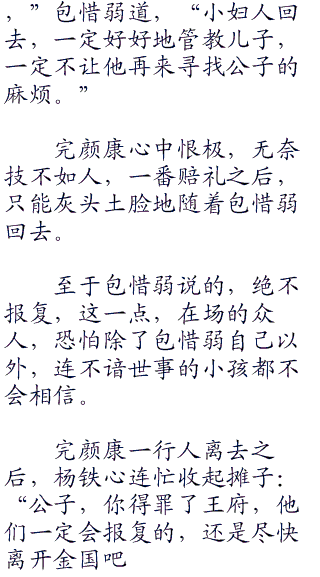 ，”包惜弱道，“小妇人回
去，一定好好地管教儿子，
一定不让他再来寻找公子的
麻烦。”
完颜康心中恨极，无奈
技不如人，一番赔礼之后，
只能灰头土脸地随着包惜弱
回去。
至于包惜弱说的，绝不
报复，这一点，在场的众
人，恐怕除了包惜弱自己以
外，连不谙世事的小孩都不
会相信。
完颜康一行人离去之
后，杨铁心连忙收起摊子：
“公子，你得罪了王府，他
们一定会报复的，还是尽快
离开金国吧